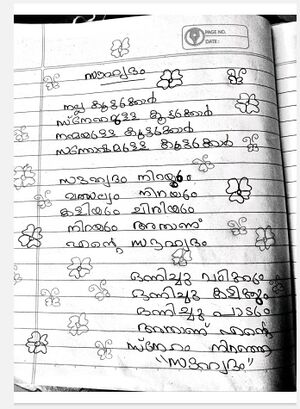 PAGE NO.
DATE:
സൗഹൃദം
നല്ല കൂട്ടുകാർ
സ്നേഹമുള്ള കൂട്ടുകാർ
നന്മയുള്ള കൂട്ടുകാർ
സന്തോഷമുള്ള കൂട്ടുകാർ
സൗഹൃദം നിറയും
വാത്സല്യം നിറയും
കളിയും ചിരിയും
നിറയും അതാണ്
എന്റെ സൗഹൃദം
ഒന്നിച്ചു പഠിക്കും
ഒന്നിച്ചു കളിക്കും
ഒന്നിച്ചു പാടും
അതാണ് എന്റെ
സ്നേഹം നിറഞ്ഞ
"സൗഹൃദം"